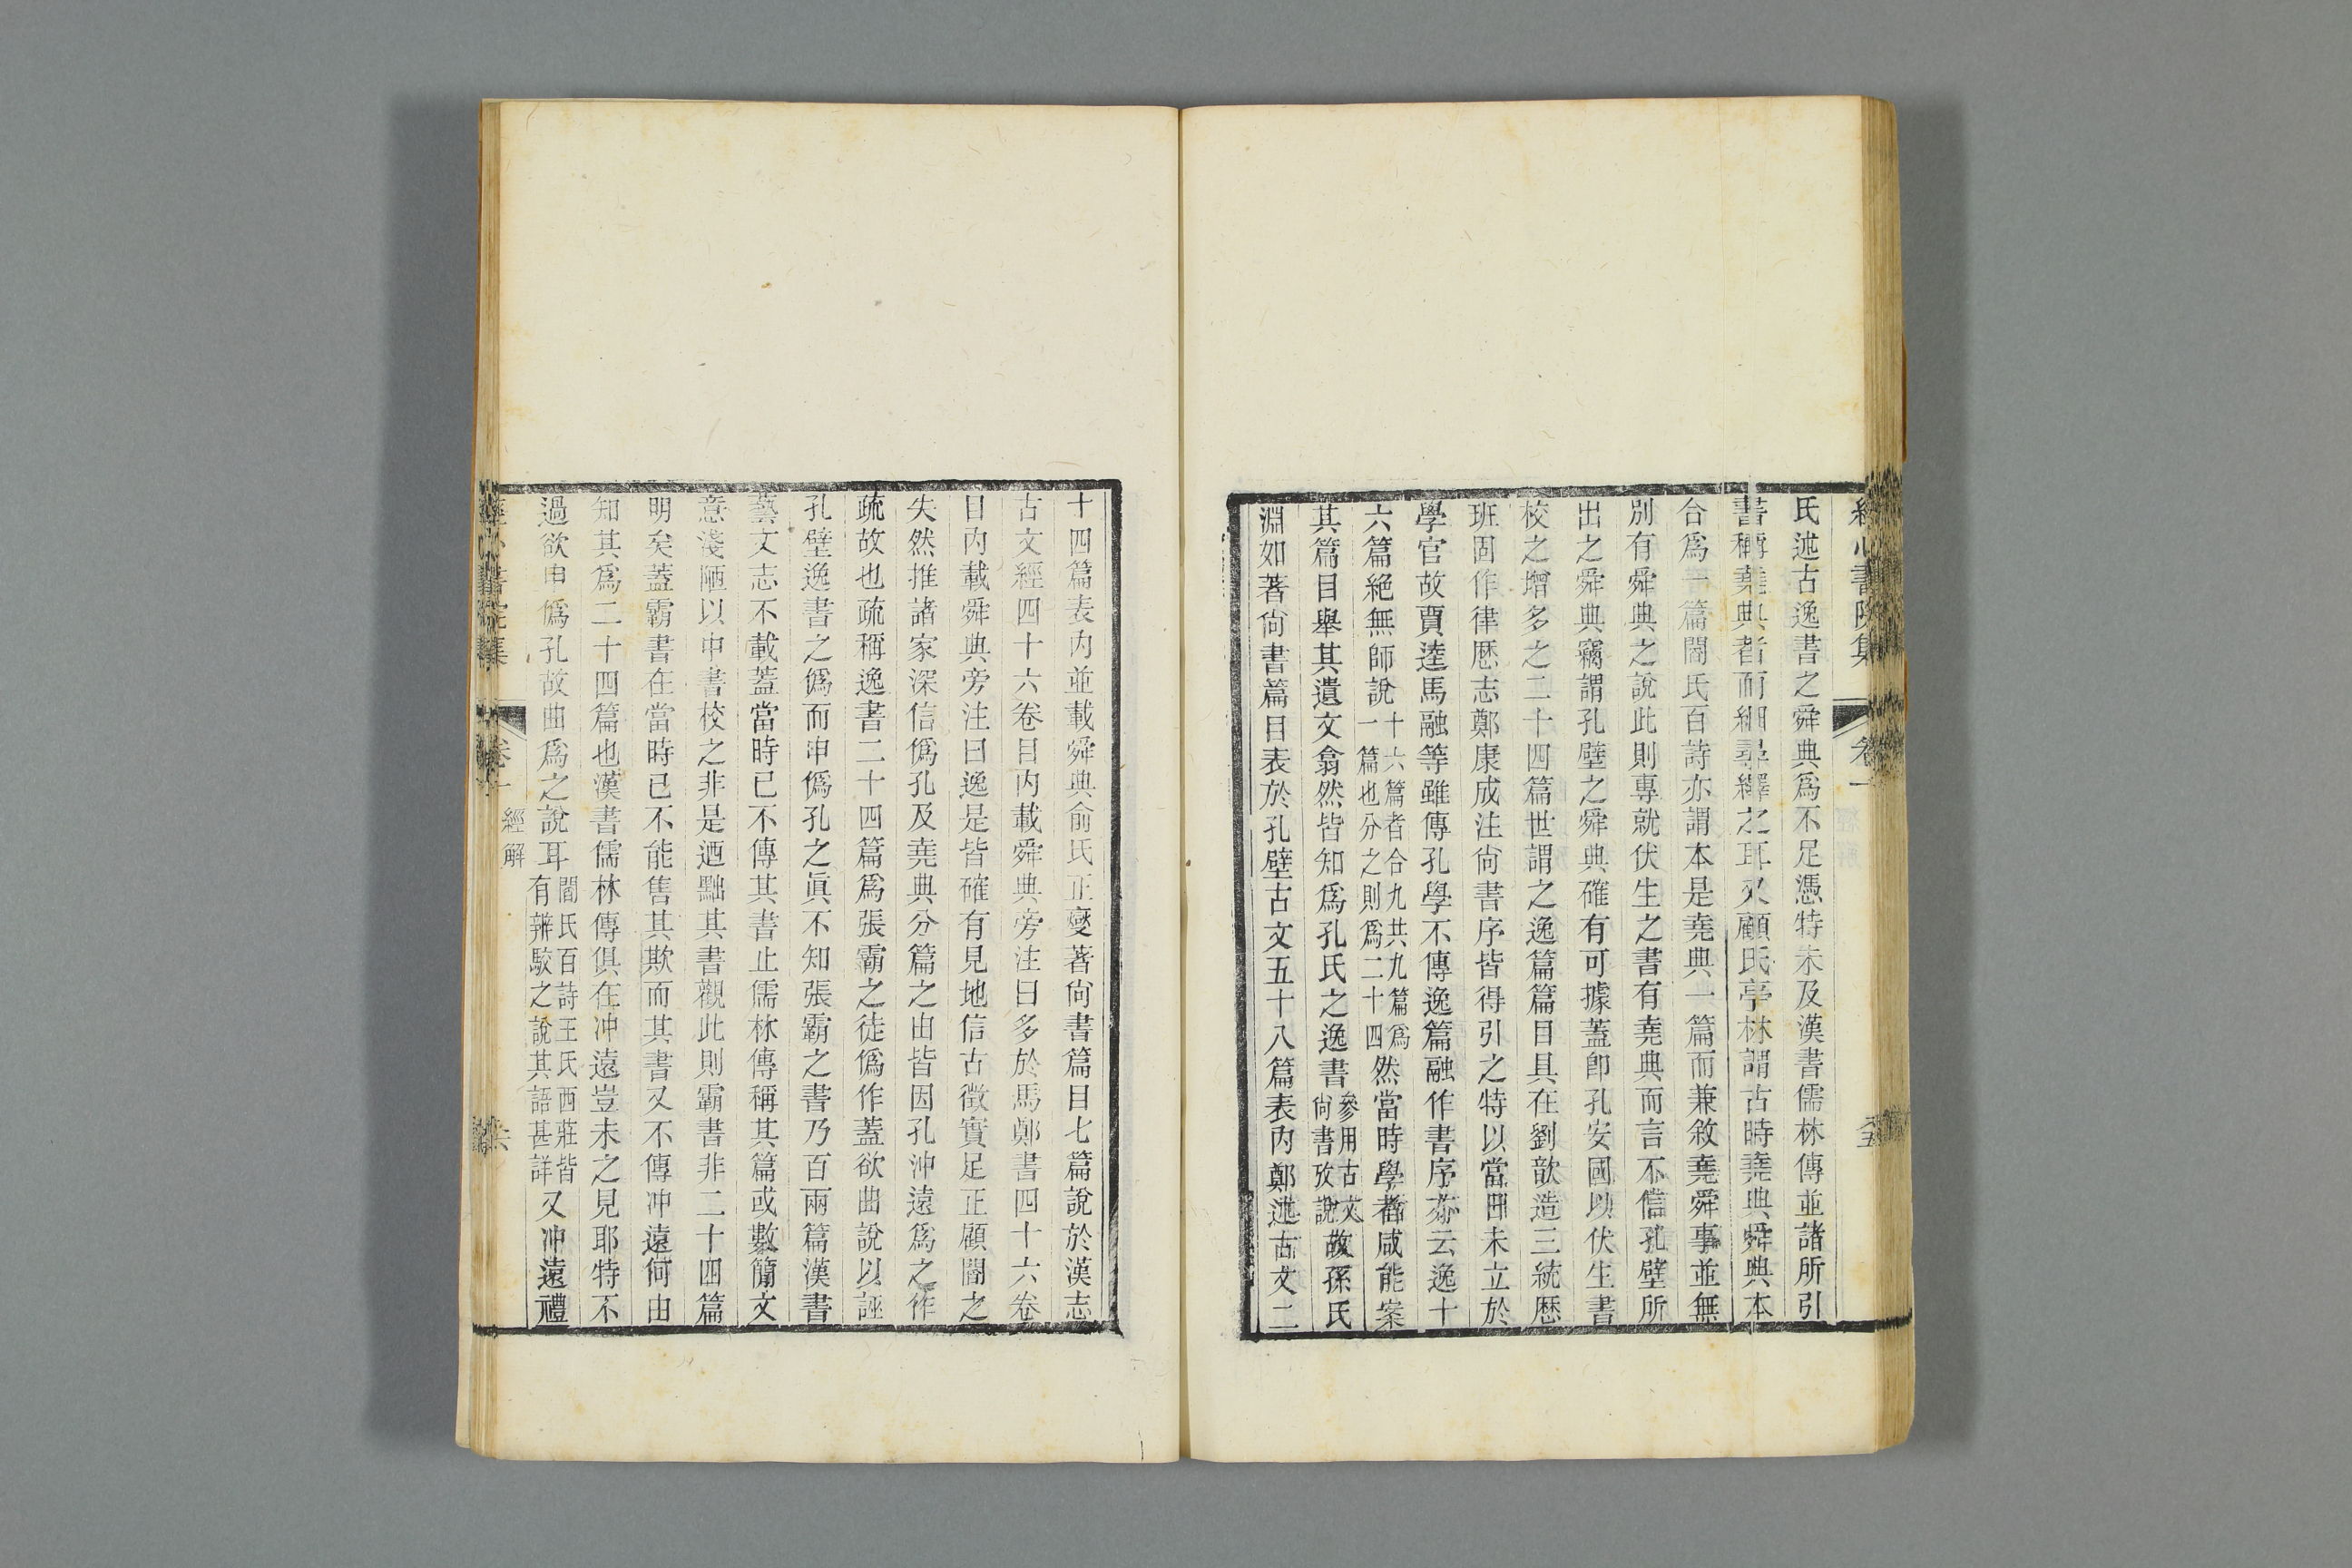 經心書院集
卷一
五
氏述古逸書之舜典爲不足憑特未及漢書儒林傳並諸所引
書稱堯典者而紬尋繹之耳又顧氏亭林謂古時堯典舜典本
合爲一篇閻氏百詩亦謂本是堯典一篇而兼敘堯舜事並無
別有舜典之說此則專就伏生之書有堯典而言不信孔壁所
出之舜典竊謂孔壁之舜典確有可據蓋卽孔安國以伏生書
校之增多之二十四篇世謂之逸篇篇目具在劉歆造三統厯
班固作律厯志鄭康成注尙書序皆得引之特以當日未立於
學官故賈逵馬融等雖傳孔學不傳逸篇融作書序亦云逸十
六篇絕無師說十六篇者合九共九篇爲一篇也分之則爲二十四然當時學者咸能案
其篇目舉其遺文翕然皆知爲孔氏之逸書參用古文尙書攷說故孫氏
淵如著尙書篇目表於孔壁古文五十八篇表內鄭述古文二
十四篇表內並載舜典俞氏正燮著尙書篇目七篇說於漢志
古文經四十六卷目內載舜典旁注曰多於馬鄭書四十六卷
目內載舜典旁注曰逸是皆確有見地信古徵實足正顧閻之
失然推諸家深信僞孔及堯典分篇之由皆因孔沖遠爲之作
疏故也疏稱逸書二十四篇爲張霸之徒僞作蓋欲曲說以誣
孔壁逸書之僞而申僞孔之眞不知張霸之書乃百兩篇漢書
藝文志不載蓋當時已不傳其書止儒林傳稱其篇或數簡文
意淺陋以中書校之非是迺黜其書觀此則霸書非二十四篇
明矣蓋霸書在當時已不能售其欺而其書又不傳沖遠何由
知其爲二十四篇也漢書儒林傳俱在沖遠豈未之見耶特不
過欲申僞孔故曲爲之說耳閻氏百詩王氏西莊皆有辨駁之說其語甚詳又沖遠禮
經心書院集
卷一
經解
六